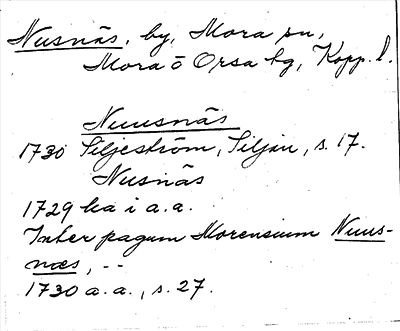 Nusnäs, by, Mora sn,
Mora o Orsa tg, Kopp. l.
Nuusnäs
1730 Siljeström, Siljan, s. 17.
Nusnäs
1729 ka i a.a.
Inter pagum Morensium Nuus-
næs, --
1730 a.a., s. 27.